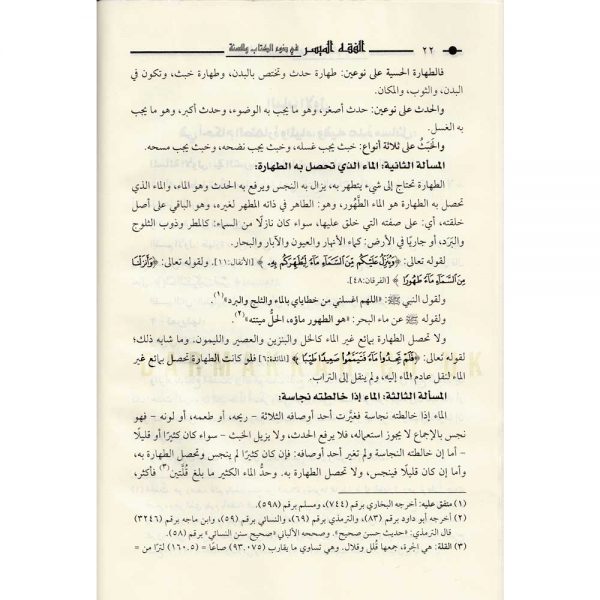 ٢٢ الفقه الميسر في ضوء الكتاب والسنة
فالطهارة الحسية على نوعين: طهارة حدث وتختص بالبدن، وطهارة خبث، وتكون في
البدن، والثوب، والمكان.
والحدث على نوعين: حدث أصغر، وهو ما يجب به الوضوء، وحدث أكبر، وهو ما يجب
به الغسل.
والخَبَثُ على ثلاثة أنواع: خبث يجب غسله، وخبث يجب نضحه، وخبث يجب مسحه.
المسألة الثانية: الماء الذي تحصل به الطهارة:
الطهارة تحتاج إلى شيء يتطهر به، يزال به النجس ويرفع به الحدث وهو الماء، والماء الذي
تحصل به الطهارة هو الماء الطَّهُور، وهو: الطاهر في ذاته المطهر لغيره، وهو الباقي على أصل
خلقته، أي: على صفته التي خلق عليها، سواء كان نازلًا من السماء: كالمطر وذوب الثلوج
والبَرَد، أو جاريًا في الأرض: كماء الأنهار والعيون والآبار والبحار.
لقوله تعالى: ﴿وَيُنَزِّلُ عَلَيْكُم مِّنَ السَّمَاءِ مَاءً لِّيُطَهِّرَكُم بِهِ﴾ [الأنفال:١١]. ولقوله تعالى: ﴿وَأَنزَلْنَا
مِنَ السَّمَاءِ مَاءً طَهُورًا﴾ [الفرقان:٤٨].
ولقول النبي ﷺ: «اللهم اغسلني من خطاياي بالماء والثلج والبرد»(١).
ولقوله ﷺ عن ماء البحر: «هو الطهور ماؤه، الحلُّ ميتته»(٢).
ولا تحصل الطهارة بمائع غير الماء كالخل والبنزين والعصير والليمون، وما شابه ذلك؛
لقوله تعالى: ﴿فَلَمْ تَجِدُوا مَاءً فَتَيَمَّمُوا صَعِيدًا طَيِّبًا﴾ [المائدة:٦] فلو كانت الطهارة تحصل بمائع غير
الماء لنقل عادم الماء إليه، ولم ينقل إلى التراب.
المسألة الثالثة: الماء إذا خالطته نجاسة:
الماء إذا خالطته نجاسة فغيَّرت أحد أوصافه الثلاثة – ريحه، أو طعمه، أو لونه – فهو
نجس بالإجماع لا يجوز استعماله، فلا يرفع الحدث، ولا يزيل الخبث – سواء كان كثيرًا أو قليلًا
– أما إن خالطته النجاسة ولم تغير أحد أوصافه: فإن كان كثيرًا لم ينجس وتحصل الطهارة به،
وأما إن كان قليلًا فينجس، ولا تحصل الطهارة به. وحدُّ الماء الكثير ما بلغ قُلَّتين(٣) فأكثر،
(١) متفق عليه: أخرجه البخاري برقم (٧٤٤)، ومسلم برقم (٥٩٨).
(٢) أخرجه أبو داود برقم (٨٣)، والترمذي برقم (٦٩)، والنسائي برقم (٥٩)، وابن ماجه برقم (٣٢٤٦)
قال الترمذي: «حديث حسن صحيح». وصححه الألباني «صحيح سنن النسائي» برقم (٥٨).
(٣) القلة: هي الجرة، جمعها قُلل وقلال. وهي تساوي ما يقارب (٩٣.٠٧٥) صاعًا= (١٦٠.٥) لترًا من =